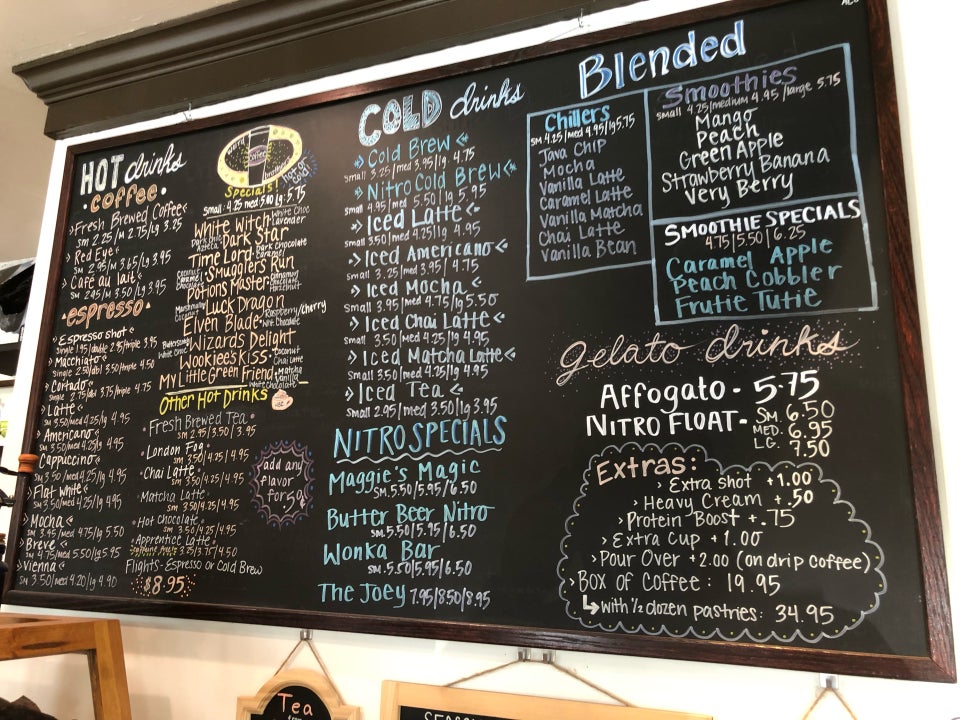 HOT drinks
coffee
Fresh Brewed Coffee
SM 2.25/M 2.75/Lg 3.25
Red Eye
SM 2.95/M 3.65/Lg 3.95
Café au lait
SM 2.95/M 3.50/Lg 3.95
espresso
Espresso shot
single 1.95/double 2.95/triple 3.95
Macchiato
single 2.50/dbl 3.50/triple 4.50
Cortado
single 2.75/dbl 3.75/triple 4.75
Latte
SM 3.50/med 4.25/lg 4.95
Americano
SM 3.50/med 4.25/lg 4.95
Cappuccino
SM 3.50/med 4.25/lg 4.95
Flat white
SM 3.50/med 4.25/lg 4.95
Mocha
SM 3.95/med 4.75/lg 5.50
Breve
SM 4.75/med 5.50/lg 5.95
Vienna
SM 3.50/med 4.20/lg 4.90
coffee
Specials!
hot or cold
Small 4.25 med 5.00 Lg 5.75
White Witch White Choc Lavender
Dark Choc Azteca Dark Star
Time Lord Dark Chocolate Caramel
Coconut Caramel Chocolate Smugglers Run
Potions Master Cinnamon Chocolate Hazelnut
Marshmallow Coconut Luck Dragon
Elven Blade Raspberry/Cherry White Chocolate
Butterscotch White Choc Wizards Delight
Wookiee's Kiss Coconut Chai Latte
My Little Green Friend Matcha Vanilla White Chocolate
Other Hot Drinks
Fresh Brewed Tea
SM 2.95/3.50/3.95
London Fog
SM 3.50/4.25/4.95
Chai Latte
SM 3.50/4.25/4.95
Matcha Latte
SM 3.50/4.25/4.95
Hot Chocolate
SM 3.50/4.25/4.95
Apprentice Latte
3.25/3.75/4.50
Flights - Espresso or Cold Brew
$8.95
add any
flavor
for .50¢
COLD drinks
Cold Brew
small 3.25/med 3.95/lg 4.75
Nitro Cold Brew
small 4.95/med 5.50/lg 5.95
Iced Latte
small 3.50/med 4.25/lg 4.95
Iced Americano
small 3.25/med 3.95/4.75
Iced Mocha
small 3.95/med 4.75/lg 5.50
Iced Chai Latte
small 3.50/med 4.25/lg 4.95
Iced Matcha Latte
small 3.50/med 4.25/lg 4.95
Iced Tea
small 2.95/med 3.50/lg 3.95
NITRO SPECIALS
Maggie's Magic
SM. 5.50/5.95/6.50
Butter Beer Nitro
SM. 5.50/5.95/6.50
Wonka Bar
SM. 5.50/5.95/6.50
The Joey 7.95/8.50/8.95
Blended
Chillers
SM 4.25/med 4.95/lg 5.75
Java Chip
Mocha
Vanilla Latte
Caramel Latte
Vanilla Matcha
Chai Latte
Vanilla Bean
Smoothies
small 4.25/medium 4.95/large 5.75
Mango
Peach
Green Apple
Strawberry Banana
Very Berry
SMOOTHIE SPECIALS
4.75/5.50/6.25
Caramel Apple
Peach Cobbler
Frutie Tutie
gelato drinks
Affogato - 5.75
NITRO FLOAT - SM. 6.50
MED. 6.95
LG. 7.50
Extras:
Extra shot +1.00
Heavy Cream +.50
Protein Boost +.75
Extra Cup +1.00
Pour Over +2.00 (on drip coffee)
Box of Coffee: 19.95
with 1/2 dozen pastries: 34.95
Tea